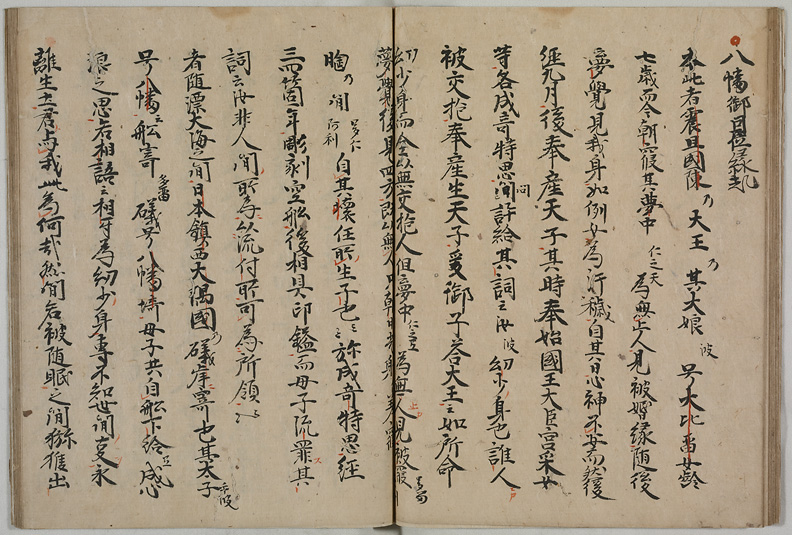 八幡御因位縁記
於此者震旦國陳乃大王乃其大娘号大比留女齢
七歳而今朝寝其夢中仁天為無止人見被婚縁随後
夢覺見我身如例女為汗穢自其日心神不安而然後
経九月後奉産天子其時奉始國王大臣宮采女
等各成奇特思問許給其詞云汝幼少身也誰人
被交抱奉産生天子爰御子荅大王云如所命
幼少身而全以無交抱人但夢中為無人見被
夢覺後見四方即無人
胸乃間自其懐任所生子也云弥成奇特思経
三箇年彫剥空舩後相具印鎰而母子流罪其
詞云汝非人間所為以流付所可為所領云
者随漂大海之間日本鎮西大隅國乃礒岸寄也其太子
号八幡云舩寄礒号八幡埼母子共自舩下給成心
浪之思占相語云相苻為幼少身専不知世間支永
離生土君与我此為何哉然間各被随眠之間猕猴出